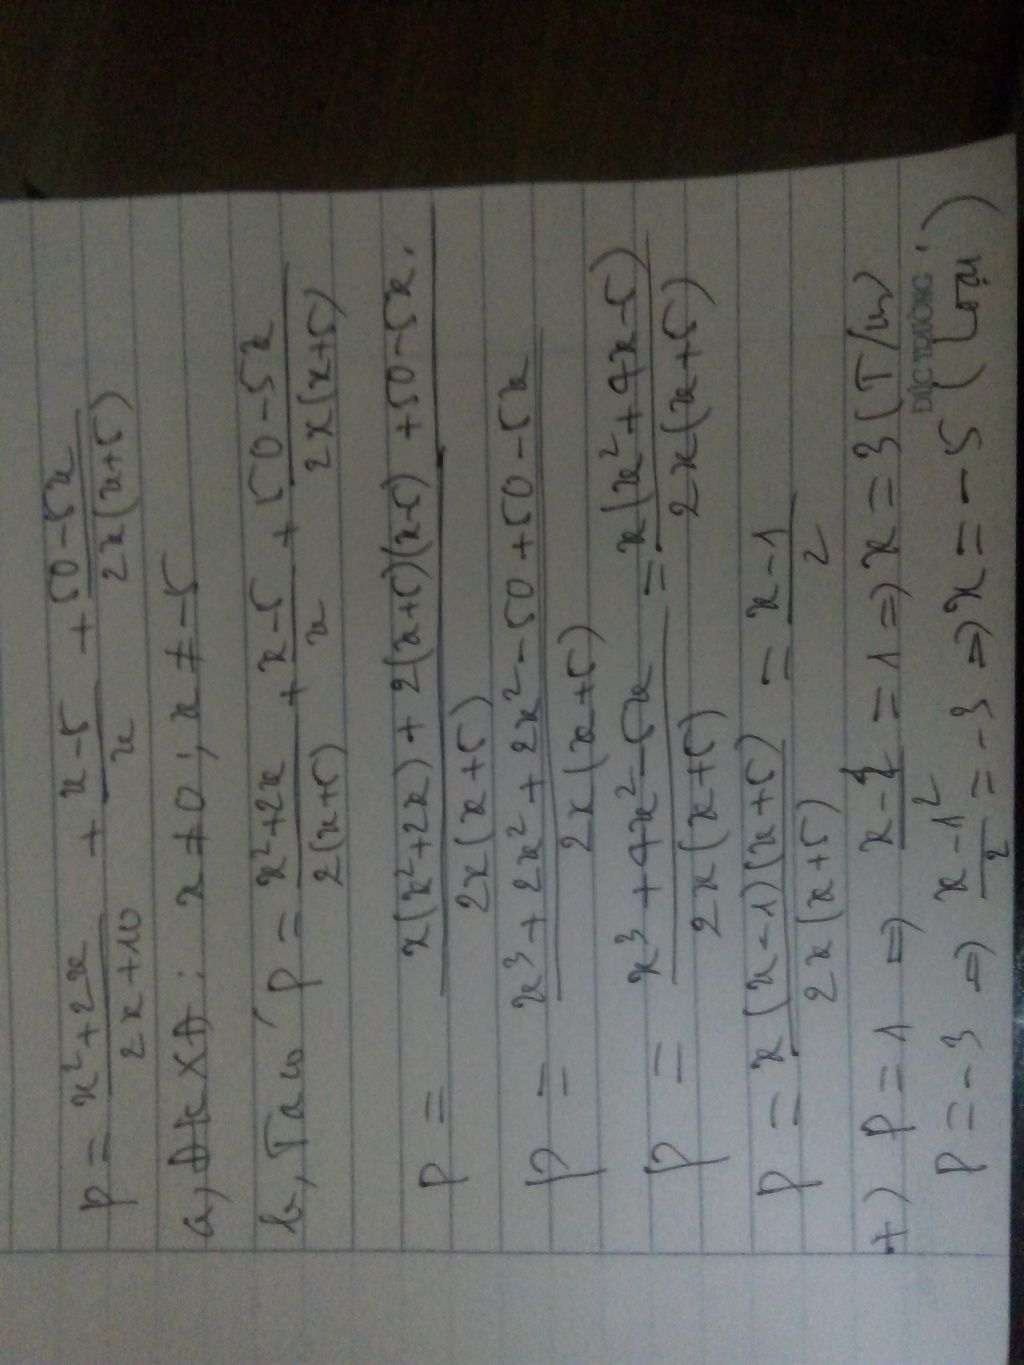 P = \frac{x²+2x}{2x+10} + \frac{x-5}{x} + \frac{50-5x}{2x(x+5)}
a, ĐKXĐ: x ≠ 0; x ≠ -5
b, Ta có P = \frac{x²+2x}{2(x+5)} + \frac{x-5}{x} + \frac{50-5x}{2x(x+5)}
P = \frac{x(x²+2x)+2(x+5)(x-5)+50-5x.}{2x(x+5)}
P = \frac{x³+2x²+2x²-50+50-5x}{2x(x+5)}
P = \frac{x³+4x²-5x}{2x(x+5)} = \frac{x(x²+4x-5)}{2x(x+5)}
P = \frac{x(x-1)(x+5)}{2x(x+5)} = \frac{x-1}{2}
+) P = 1 => \frac{x-1}{2} = 1 => x = 3 (T/m)
ĐỨC TRƯỜNG
P = -3 => \frac{x-1}{2} = -3 => x = -5 (Loại)